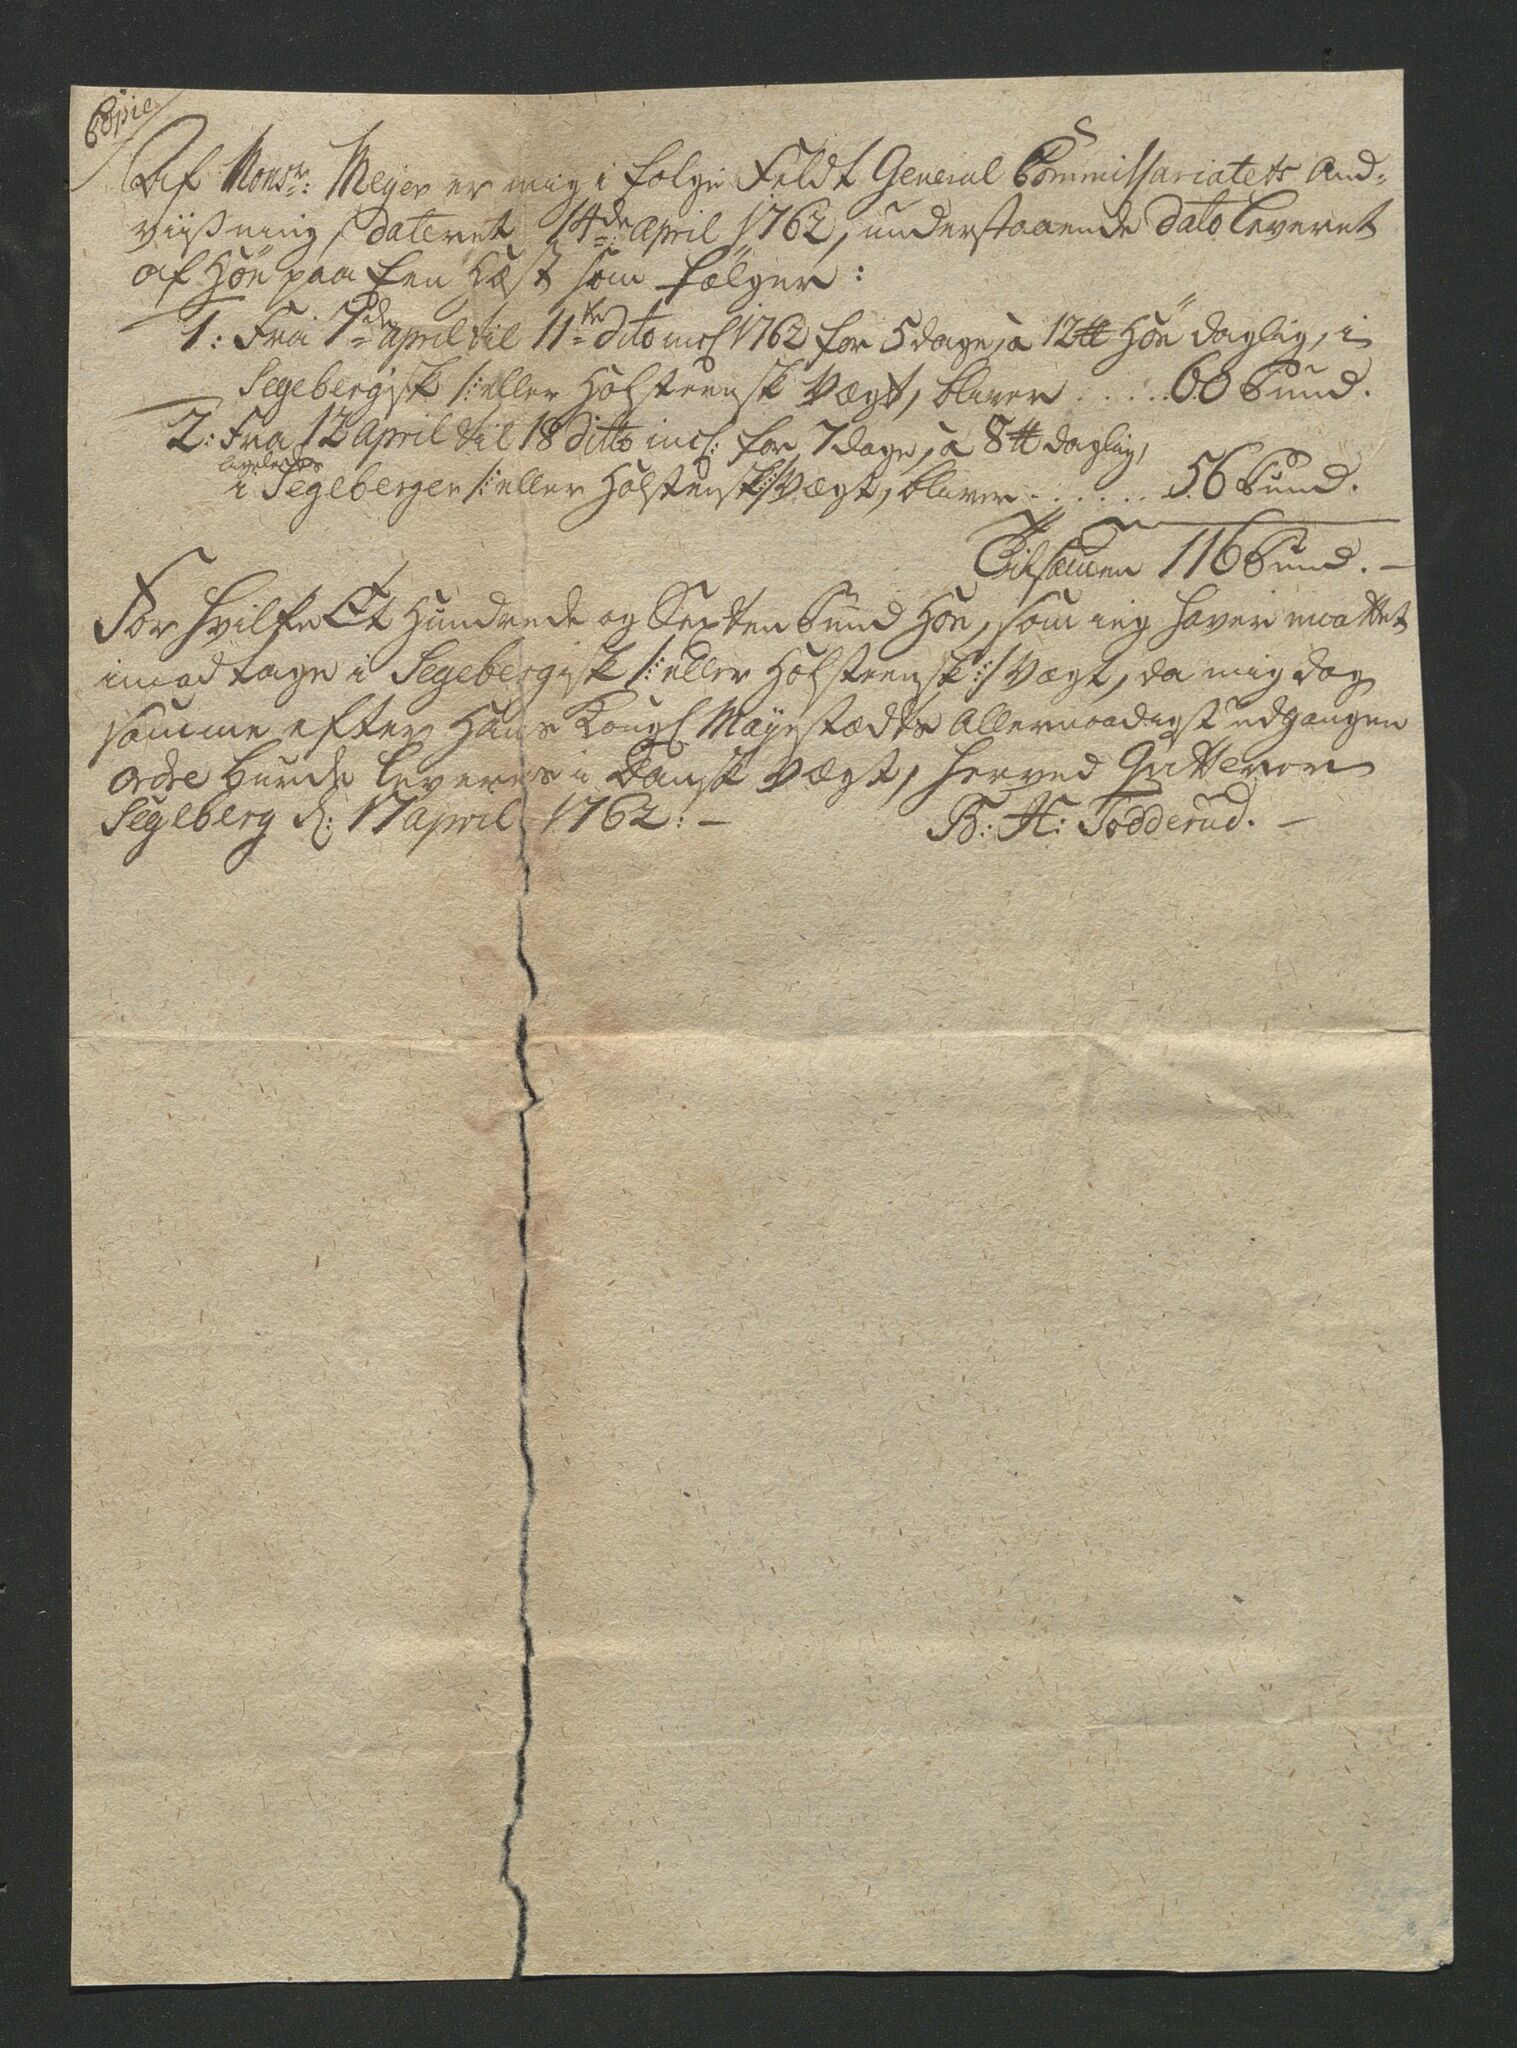 Copie
Af Monsr: Meyer er mig i følge Feldt General Commissariatets And=
viisning, dateret 14de April 1762, understaaende dato leveret
af Höe paa Een Hæst som følger:
1: Fra 7de April til 11te dito incl 1762 for 5 dage, a 12 ℔ Höe daglig, i
Segebergisk /: eller Holsteensk Vægt, bliver . . . . . 60 Pund.
2: Fra 12 April til 18 ditto incl: for 7 dage, a 8 ℔ daglig,
ligeledes
i Segeberger /: eller Holstensk :/ Vægt, bliver . . . . . . 56 Pund.
Tilsamen 116 Pund. —
For hvilke Et Hundrede og Sexten Pund Höe, som ieg haver maattet
imodtage i Segebergisk /: eller Holsteensk :/ Vægt, da mig dog
samme efter Hans Kongl Mayestædts Allernaadigst udgangen
Ordre burde leveres i Dansk Vægt, herved Qvitterer
Segeberg d: 17 April 1762: — B: H: Todderud. —